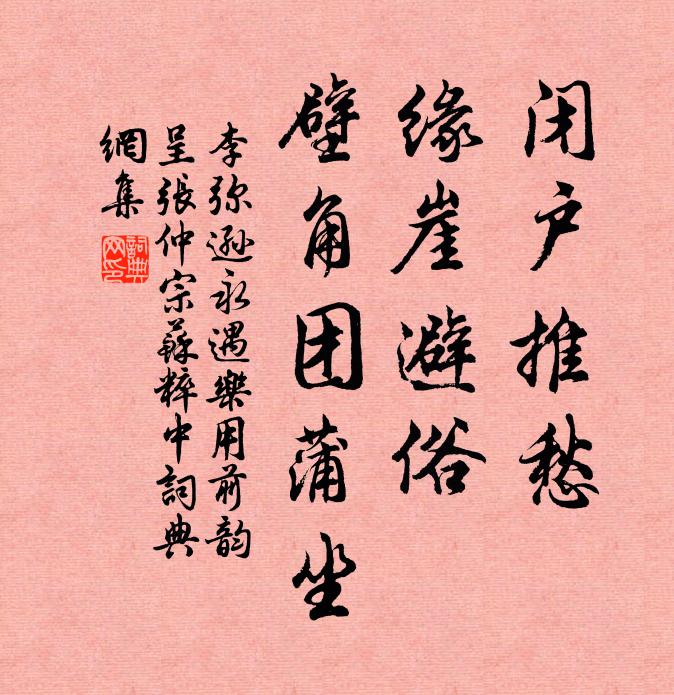 闭户推愁
缘崖避俗
壁角团蒲坐
李弥逊永遇樂用前韵
呈張仲宗蘇粹中詞典
網集
詞典网印